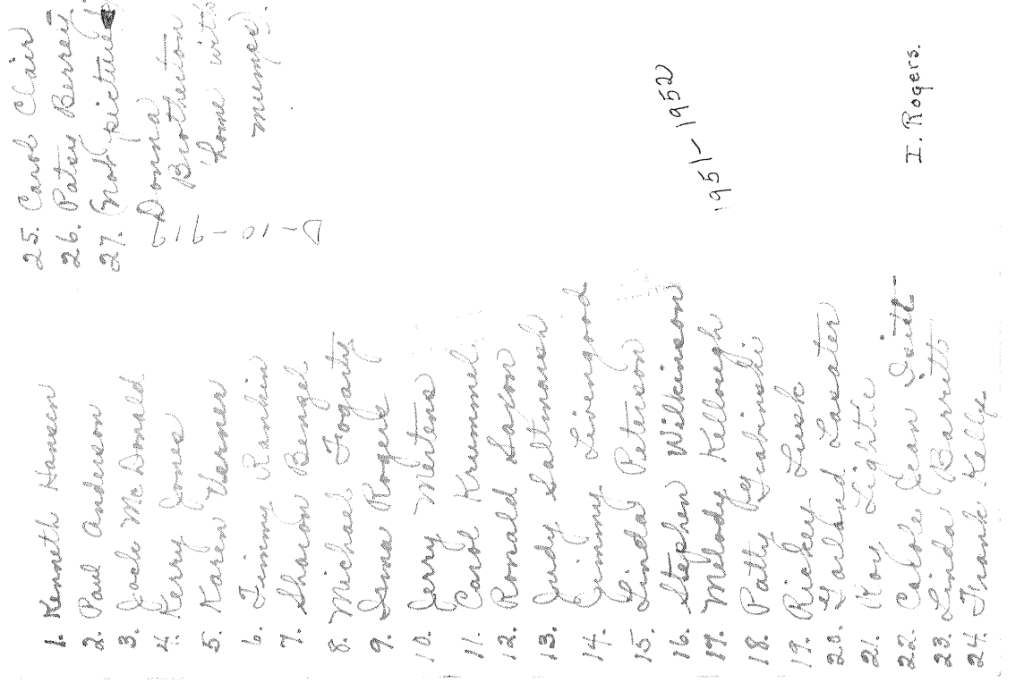 1. Kenneth Hansen
2. Paul Anderson
3. Jack McDonald
4. Kerry Jones
5. Karen Verner
6. Timmy Rankin
7. Sharon Bengel
8. Michael Fogarty
9. Irma Rogers
10. Jerry Mertens
11. Carol Krummel
12. Ronald
13. Judy Saltmarsh
14. Jimmy Livengood
15. Linda Peterson
16. Stephen Wilkinson
17. Melody Kellough
18. Patty
19. Rickey Lusk
20. Garland Lasater
21. Roy Lightle
22. Carole Jean
23. Linda Barritt
24. Frank Kelly
25. Carol Clair
26. Patsy
27. (not picture
Donna
Brotherton
home with
mumps.
1951-1952
I. Rogers.